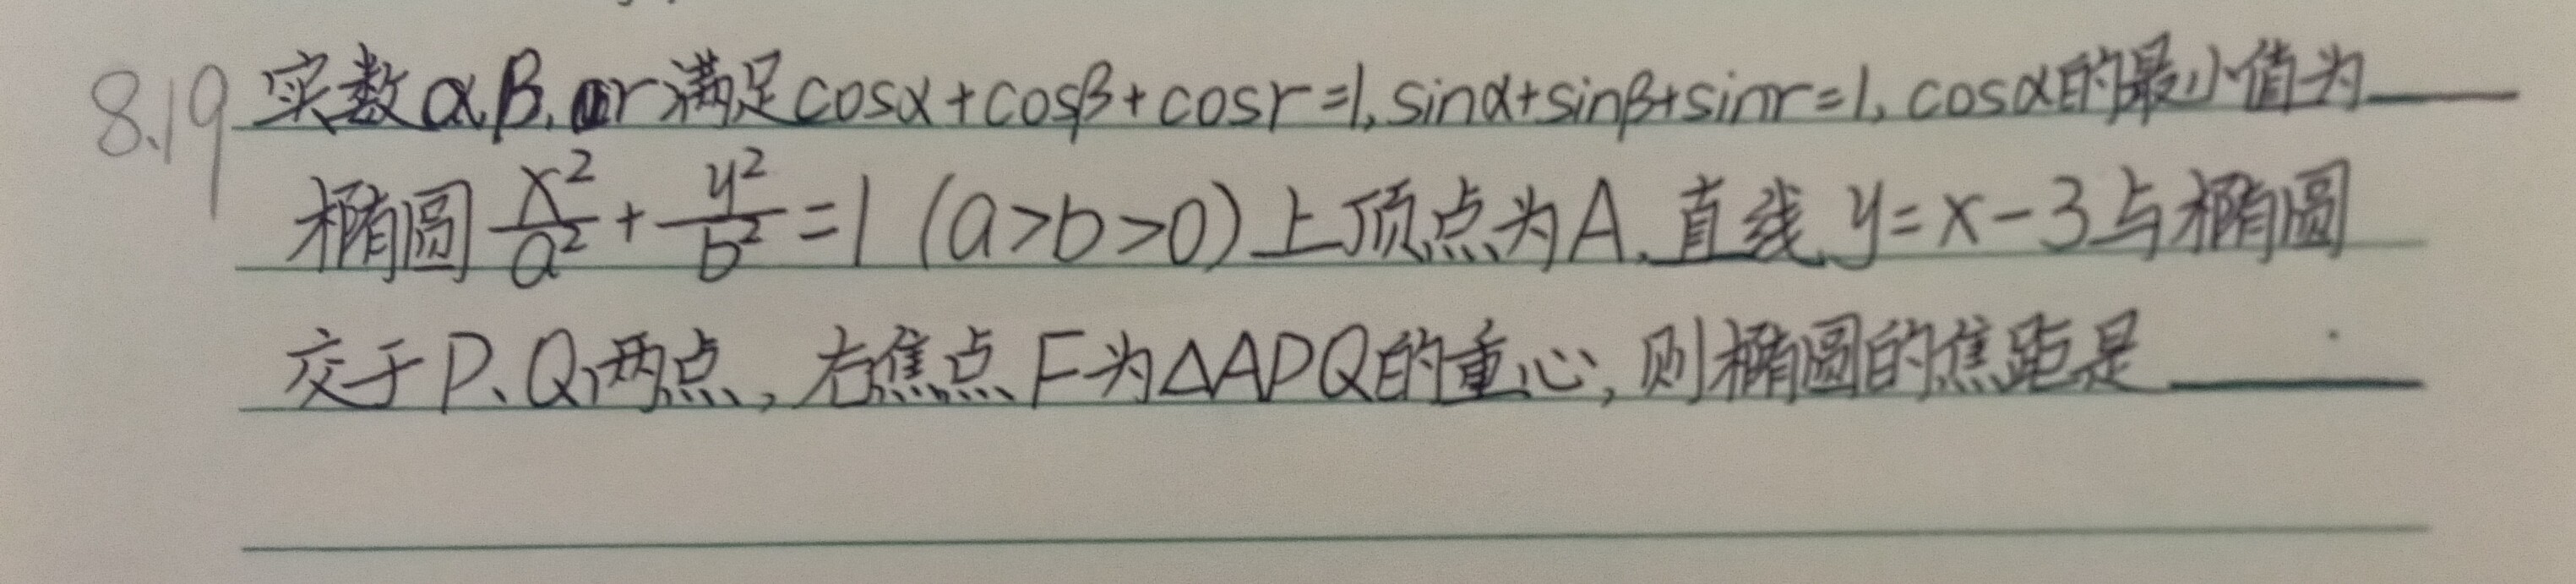 8.19 实数α,β,r满足cosα+cosβ+cosr=1,sinα+sinβ+sinr=1,cosα的最小值为____
椭圆x²/a²+y²/b²=1(a>b>0)上顶点为A.直线y=x-3与椭圆
交于P、Q两点,右焦点F为△APQ的重心,则椭圆的焦距是____